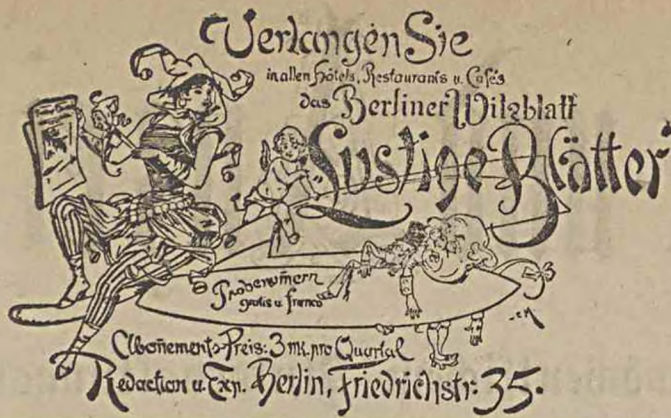 Verlangen Sie
in allen Hôtels, Restaurants u. Cafés
das Berliner Witzblatt
Lustige Blätter
Probenum̅ern
gratis u. franco
Abon̅ements-Preis: 3 Mk. pro Quartal
Redaction u. Exp. Berlin, Friedrichstr. 35.